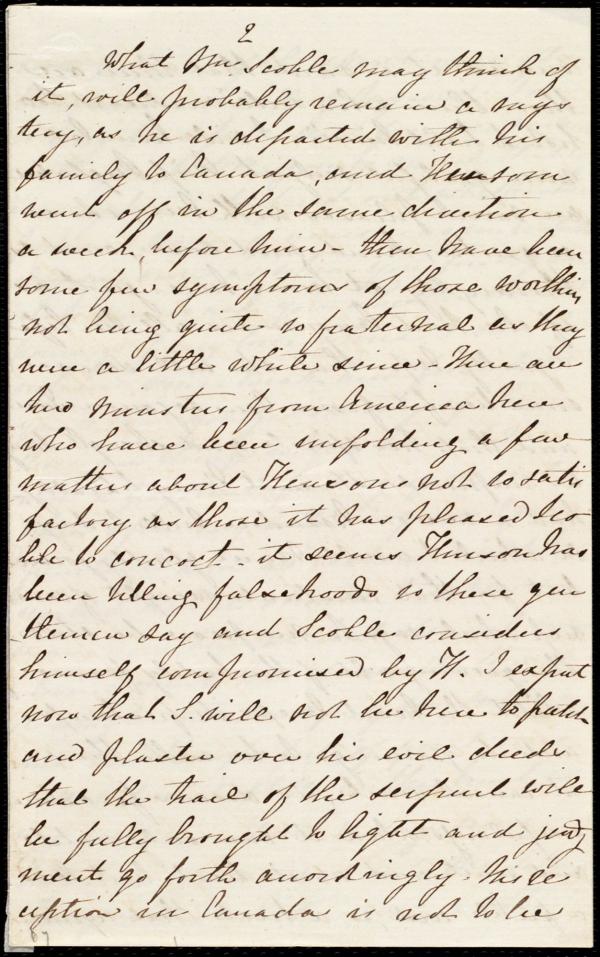 2
What Mr. Scoble may think of
it, will probably remain a mys
tery, as he is departed with his
family to Canada, and Henson
went off in the same direction
a week before him - there have been
some few symptoms of those worthies
not being quite so fraternal as they
were a little while since - There are
two ministers from America here
who have been unfolding a few
matters about Henson not so satis
factory as those it has pleased Sco
ble to concoct - it seems Henson has
been telling falsehoods so these gen
tlemen say and Scoble considers
himself compromised by H. I expect
now that S. will not be here to patch
and plaster over his evil deeds
that the trail of the serpent will
be fully brought to light and judg
ment go forth accordingly. His re
ception in Canada is not to be